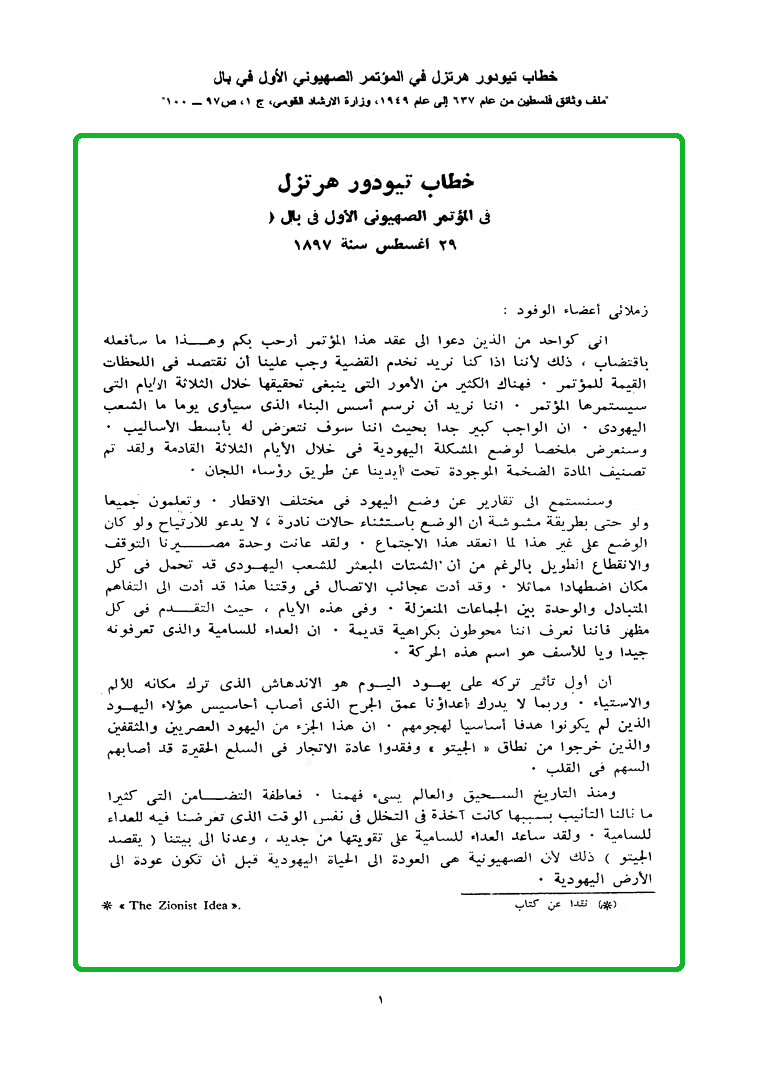 خطاب تيودور هرتزل في المؤتمر الصهيوني الأول في بال
"ملف وثائق فلسطين من عام ٦٣٧ إلى عام ١٩٤٩، وزارة الارشاد القومي، ج ١، ص٩٧ ــ ١٠٠"
خطاب تيودور هرتزل
فى المؤتمر الصهيونى الأول فى بال (
٢٩ أغسطس سنة ١٨٩٧
زملائى أعضاء الوفود :
انى كواحد من الذين دعوا الى عقد هذا المؤتمر أرحب بكم وهــذا ما سأفعله
باقتضاب ، ذلك لأننا اذا كنا نريد نخدم القضية وجب علينا أن نقتصد فى اللحظات
القيمة للمؤتمر ٠ فهناك الكثير من الأمور التى ينبغى تحقيقها خلال الثلاثة الايام التى
سيستمرها المؤتمر ٠ اننا نريد أن نرسم أسس البناء الذى سيأوى يوما ما الشعب
اليهودى ٠ ان الواجب كبير جدا بحيث اننا سوف نتعرض له بأبسط الأساليب ٠
وسنعرض ملخصا لوضع المشكلة اليهودية فى خلال الأيام الثلاثة القادمة ولقد تم
تصنيف المادة الضخمة الموجودة تحت أيدينا عن طريق رؤساء اللجان ٠
وسنستمع الى تقارير عن وضع اليهود فى مختلف الاقطار ٠ وتعلمون جميعا
ولو حتى بطريقة مشوشة ان الوضع باستثناء حالات نادرة ، لا يدعو للارتياح ولو كان
الوضع على غير هذا لما انعقد هذا الاجتماع ٠ ولقد عانت وحدة مصــيرنا التوقف
والانقطاع الطويل بالرغم من أن الشتات المبعثر للشعب اليهـودى قد تحمل فى كل
مكان اضطهادا مماثلا ٠ وقد أدت عجائب الاتصال فى وقتنا هذا قد أدت الى التفاهم
المتبادل والوحدة بين الجماعات المنعزلة ٠ وفى هذه الأيام ، حيث التقــدم فى كل
مظهر فاننا نعرف اننا محوطون بكراهية قديمة ٠ ان العداء للسامية والذى تعرفونه
جيدا ويا للأسف هو اسم هذه الحركة ٠
ان أول تأثير تركه على يهـود اليـوم هو الاندهاش الذى ترك مكانه للألم
والاستياء ٠ وربما لا يدرك أعداؤنا عمق الجرح الذى أصاب أحاسيس هؤلاء اليهـود
الذين لم يكونوا هدفا أساسيا لهجومهم ٠ ان هذا الجزء من اليهود العصريين والمثقفين
والذين خرجوا من نطاق « الجيتو » وفقدوا عادة الاتجار فى السلع الحقيرة قد أصابهم
السهم فى القلب ٠
ومنذ التاريخ السـحيق والعالم يسىء فهمنا ٠ فعاطفة التضــامن التى كثيرا
ما نالنا التأنيب بسببها كانت آخذة فى التخلل فى نفس الوقت الذى تعرضنا فيه للعداء
للسامية ٠ ولقد ساعد العداء للسامية على تقويتها من جديد ، وعدنا الى بيتنا ( يقصد
الجيتو ) ذلك لأن الصهيونية هى العودة الى الحياة اليهودية قبل أن تكون عودة الى
الأرض اليهودية ٠
(*) نقدا عن كتاب
* « The Zionist Idea ».
١